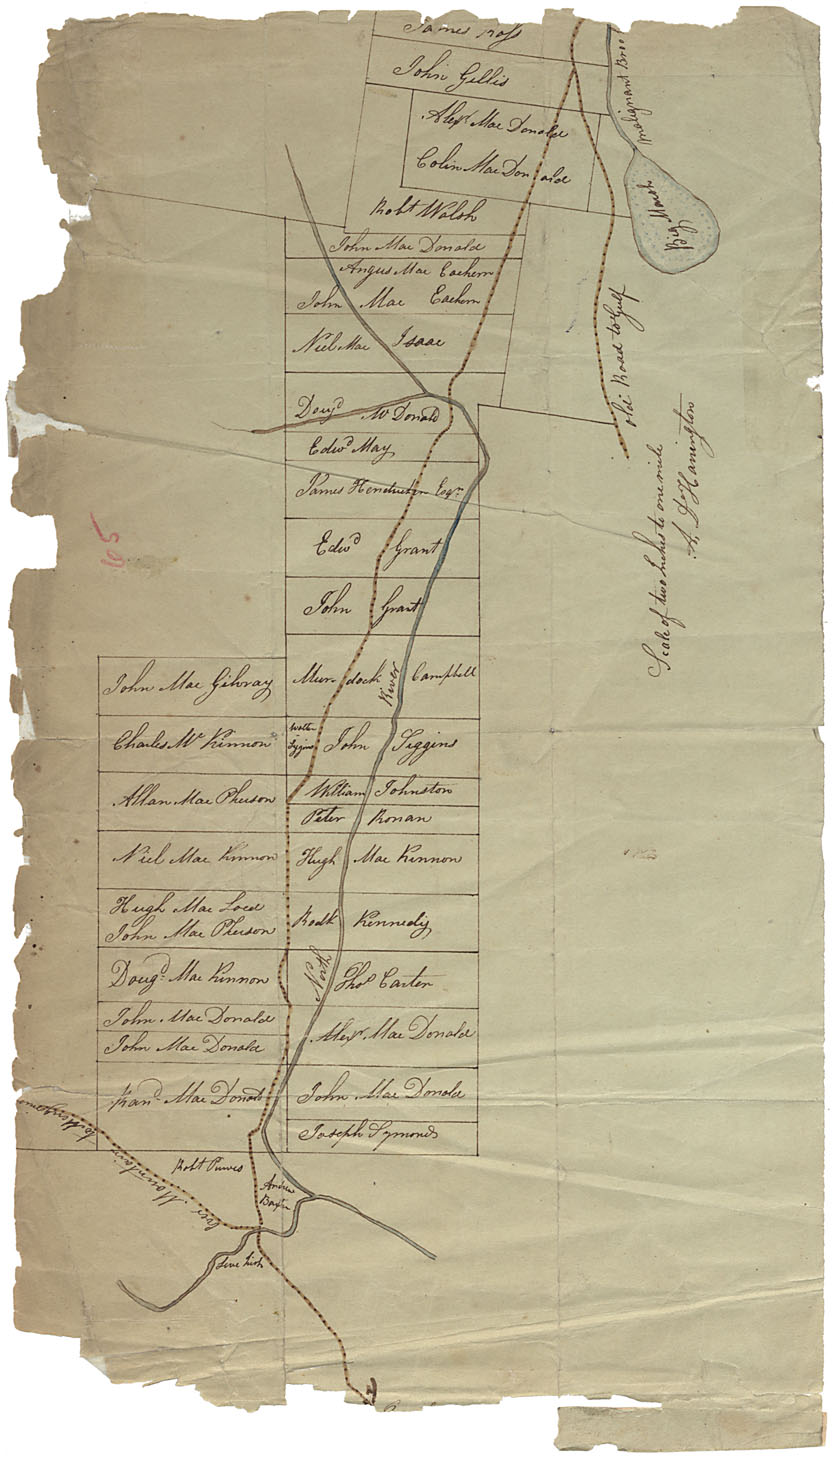 James Ross
John Gillis
Malignant Broo
Alexr Mac Donald
Colin Mac Donald
Big Marsh
Robt Walsh
John Mac Donald
Angus Mac Eachern
John Mac Eachern
Niel Mac Isaac
old Road to Gulf
Dougd McDonald
Edwd May
James Henderson Esqr
Scale of two Inches to one mile
Edwd Grant
John Grant
John Mac Gilvray
Murdock Campbell
River
Charles Mc Kinnon
John Siggins
Allan Mac Pherson
William Johnston
Peter Ronan
Niel Mac Kinnon
Hugh Mac Kinnon
Hugh Mac Leod
John Mac Pherson
Kennedy
Dougd Mac Kinnon
North
Thos Carter
John Mac Donald
John Mac Donald
Alexr Mac Donald
Rand Mac Donald
John Mac Donald
Joseph Symonds
over Mountain
Robt Purves
Andrew
Baxter
65